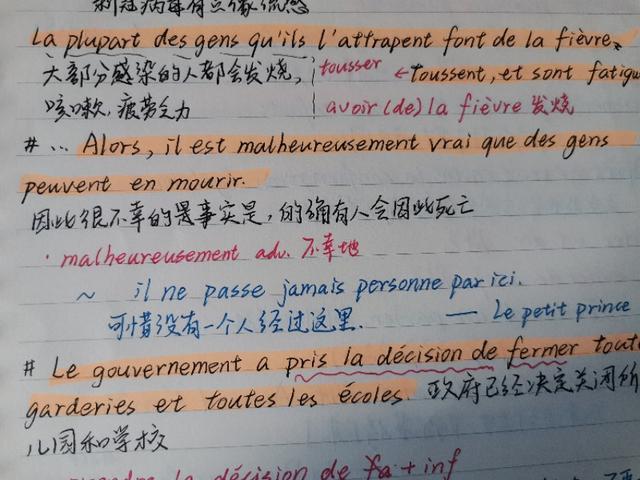 新冠病毒有点像流感
La plupart des gens qu'ils l'attrapent font de la fièvre,
大部分感染的人都会发烧, tousser ← toussent, et sont fatigu
咳嗽, 疲劳乏力 avoir (de) la fièvre 发烧
# ... Alors, il est malheureusement vrai que des gens
peuvent en mourir.
因此很不幸的是事实是, 的确有人会因此死亡
· malheureusement adv. 不幸地
~ il ne passe jamais personne par ici.
可惜没有一个人经过这里. — Le petit prince
# Le gouvernement a pris la décision de fermer tout
garderies et toutes les écoles. 政府已经决定关闭所
儿园和学校
la décision de fa + inf